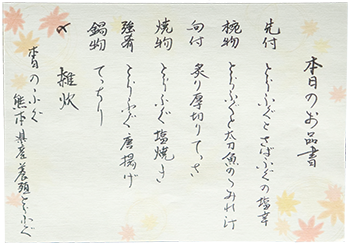 本日のお品書
先付 とらふぐとさばふぐの塩辛
椀物 とらふぐと太刀魚のつみれ汁
向付 炙り厚切りてっさ
焼物 とらふぐ塩焼き
強肴 とらふぐ唐揚げ
鍋物 てっちり
〆 雑炊
本日のふぐ
熊本県産養殖とらふぐ